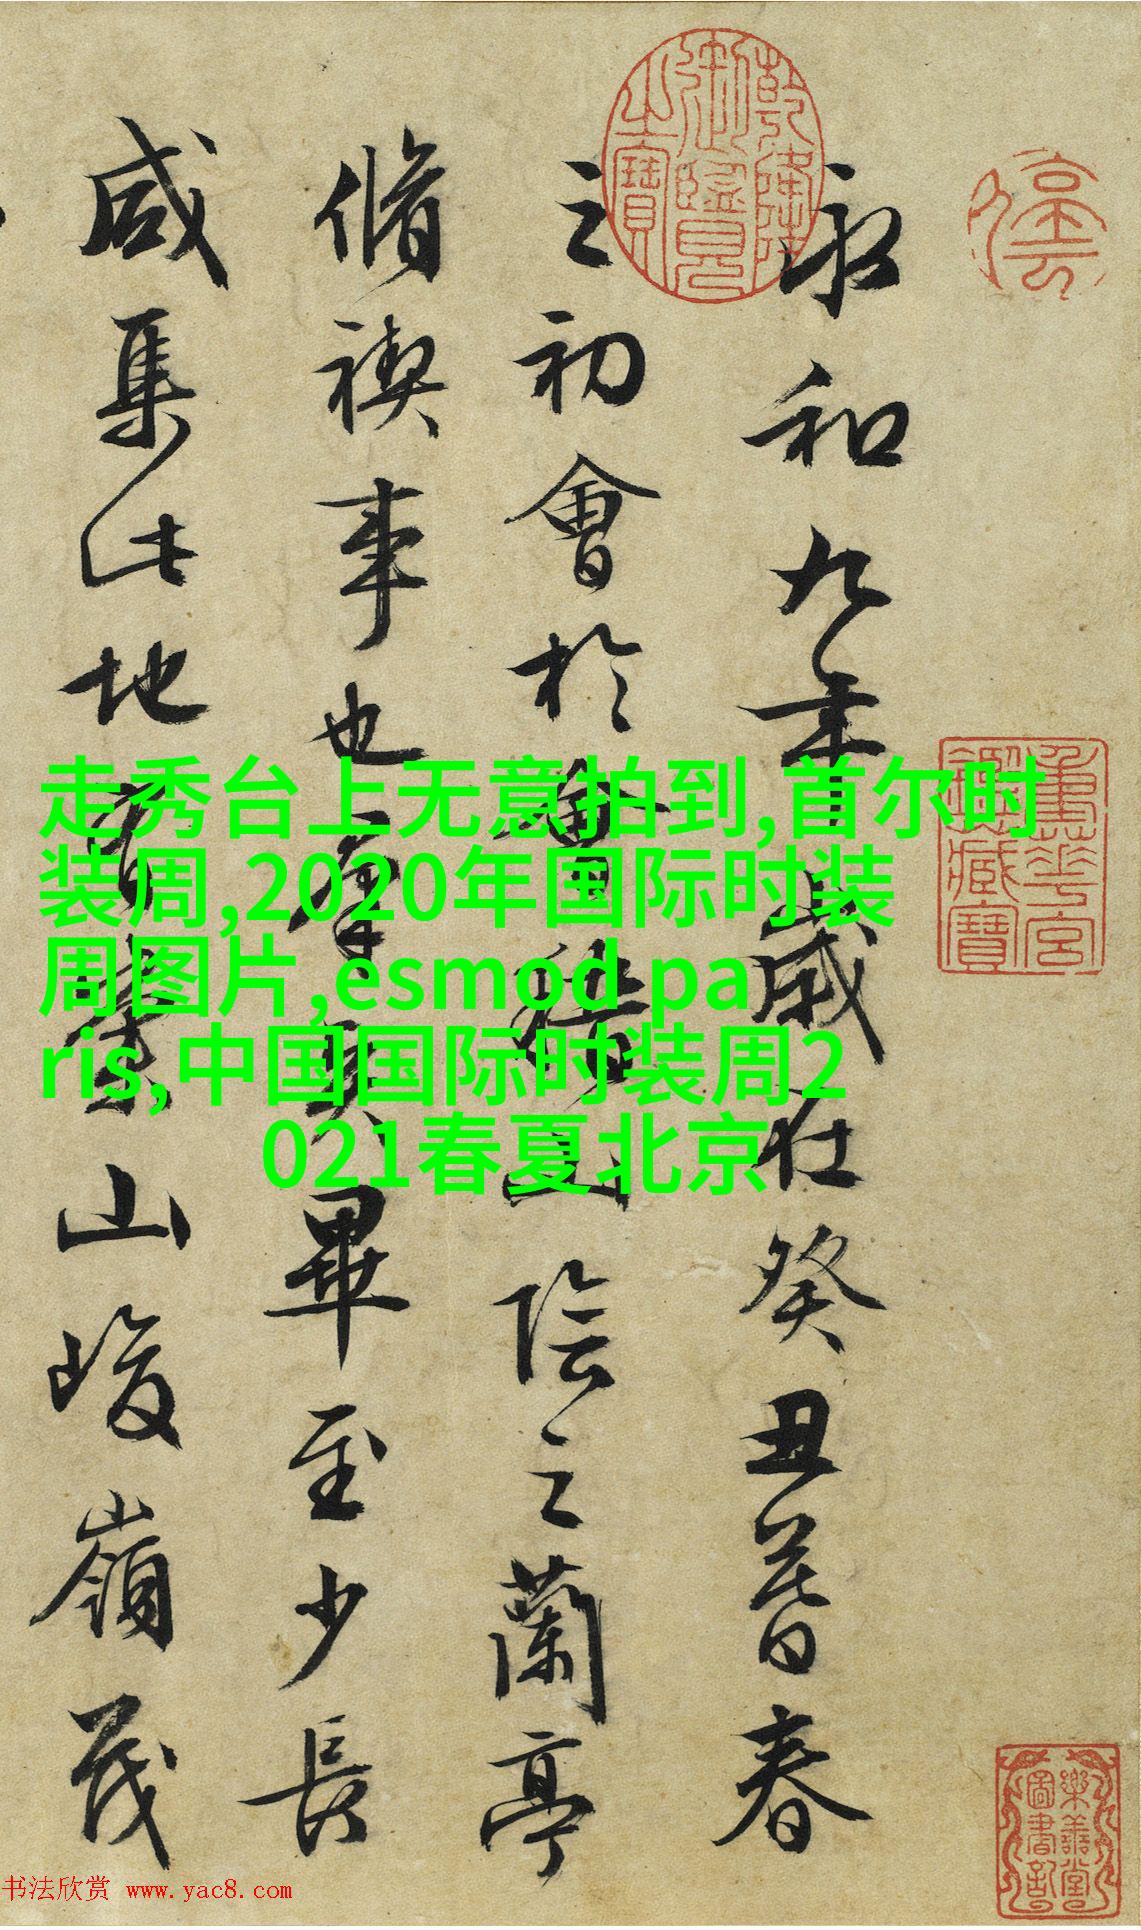 永和九年歲在癸丑暮春
之初會於會稽山陰之蘭亭
脩禊事也羣賢畢至少長
咸集此地有崇山峻嶺茂
乾隆御覽之寶
重華宮鑑藏寶
樂善堂圖書記
走秀台上无意拍到,首尔时
装周,2020年国际时装
周图片,esmod pa
ris,中国国际时装周2
021春夏北京
书法欣赏 www.yac8.com